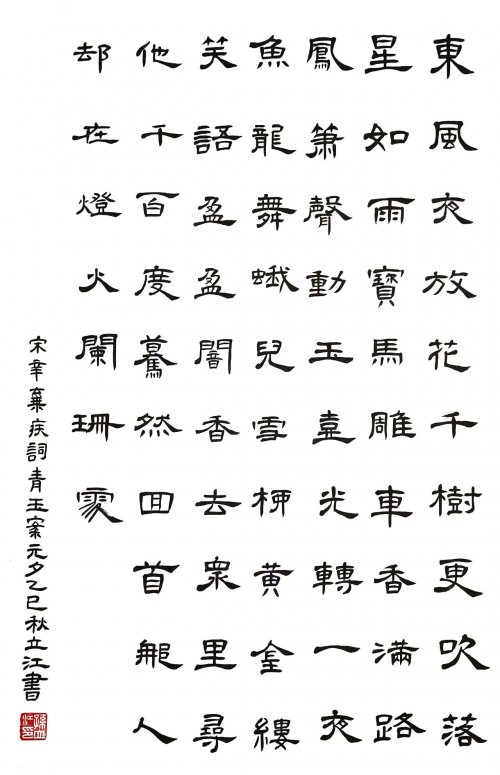 東風夜放花千樹更吹落
星如雨寶馬雕車香滿路
鳳簫聲動玉壺光轉一夜
魚龍舞蛾兒雪柳黃金縷
笑語盈盈闇香去衆里尋
他千百度驀然回首那人
却在燈火闌珊處
宋辛棄疾詞青玉案元夕乙巳秋立江書